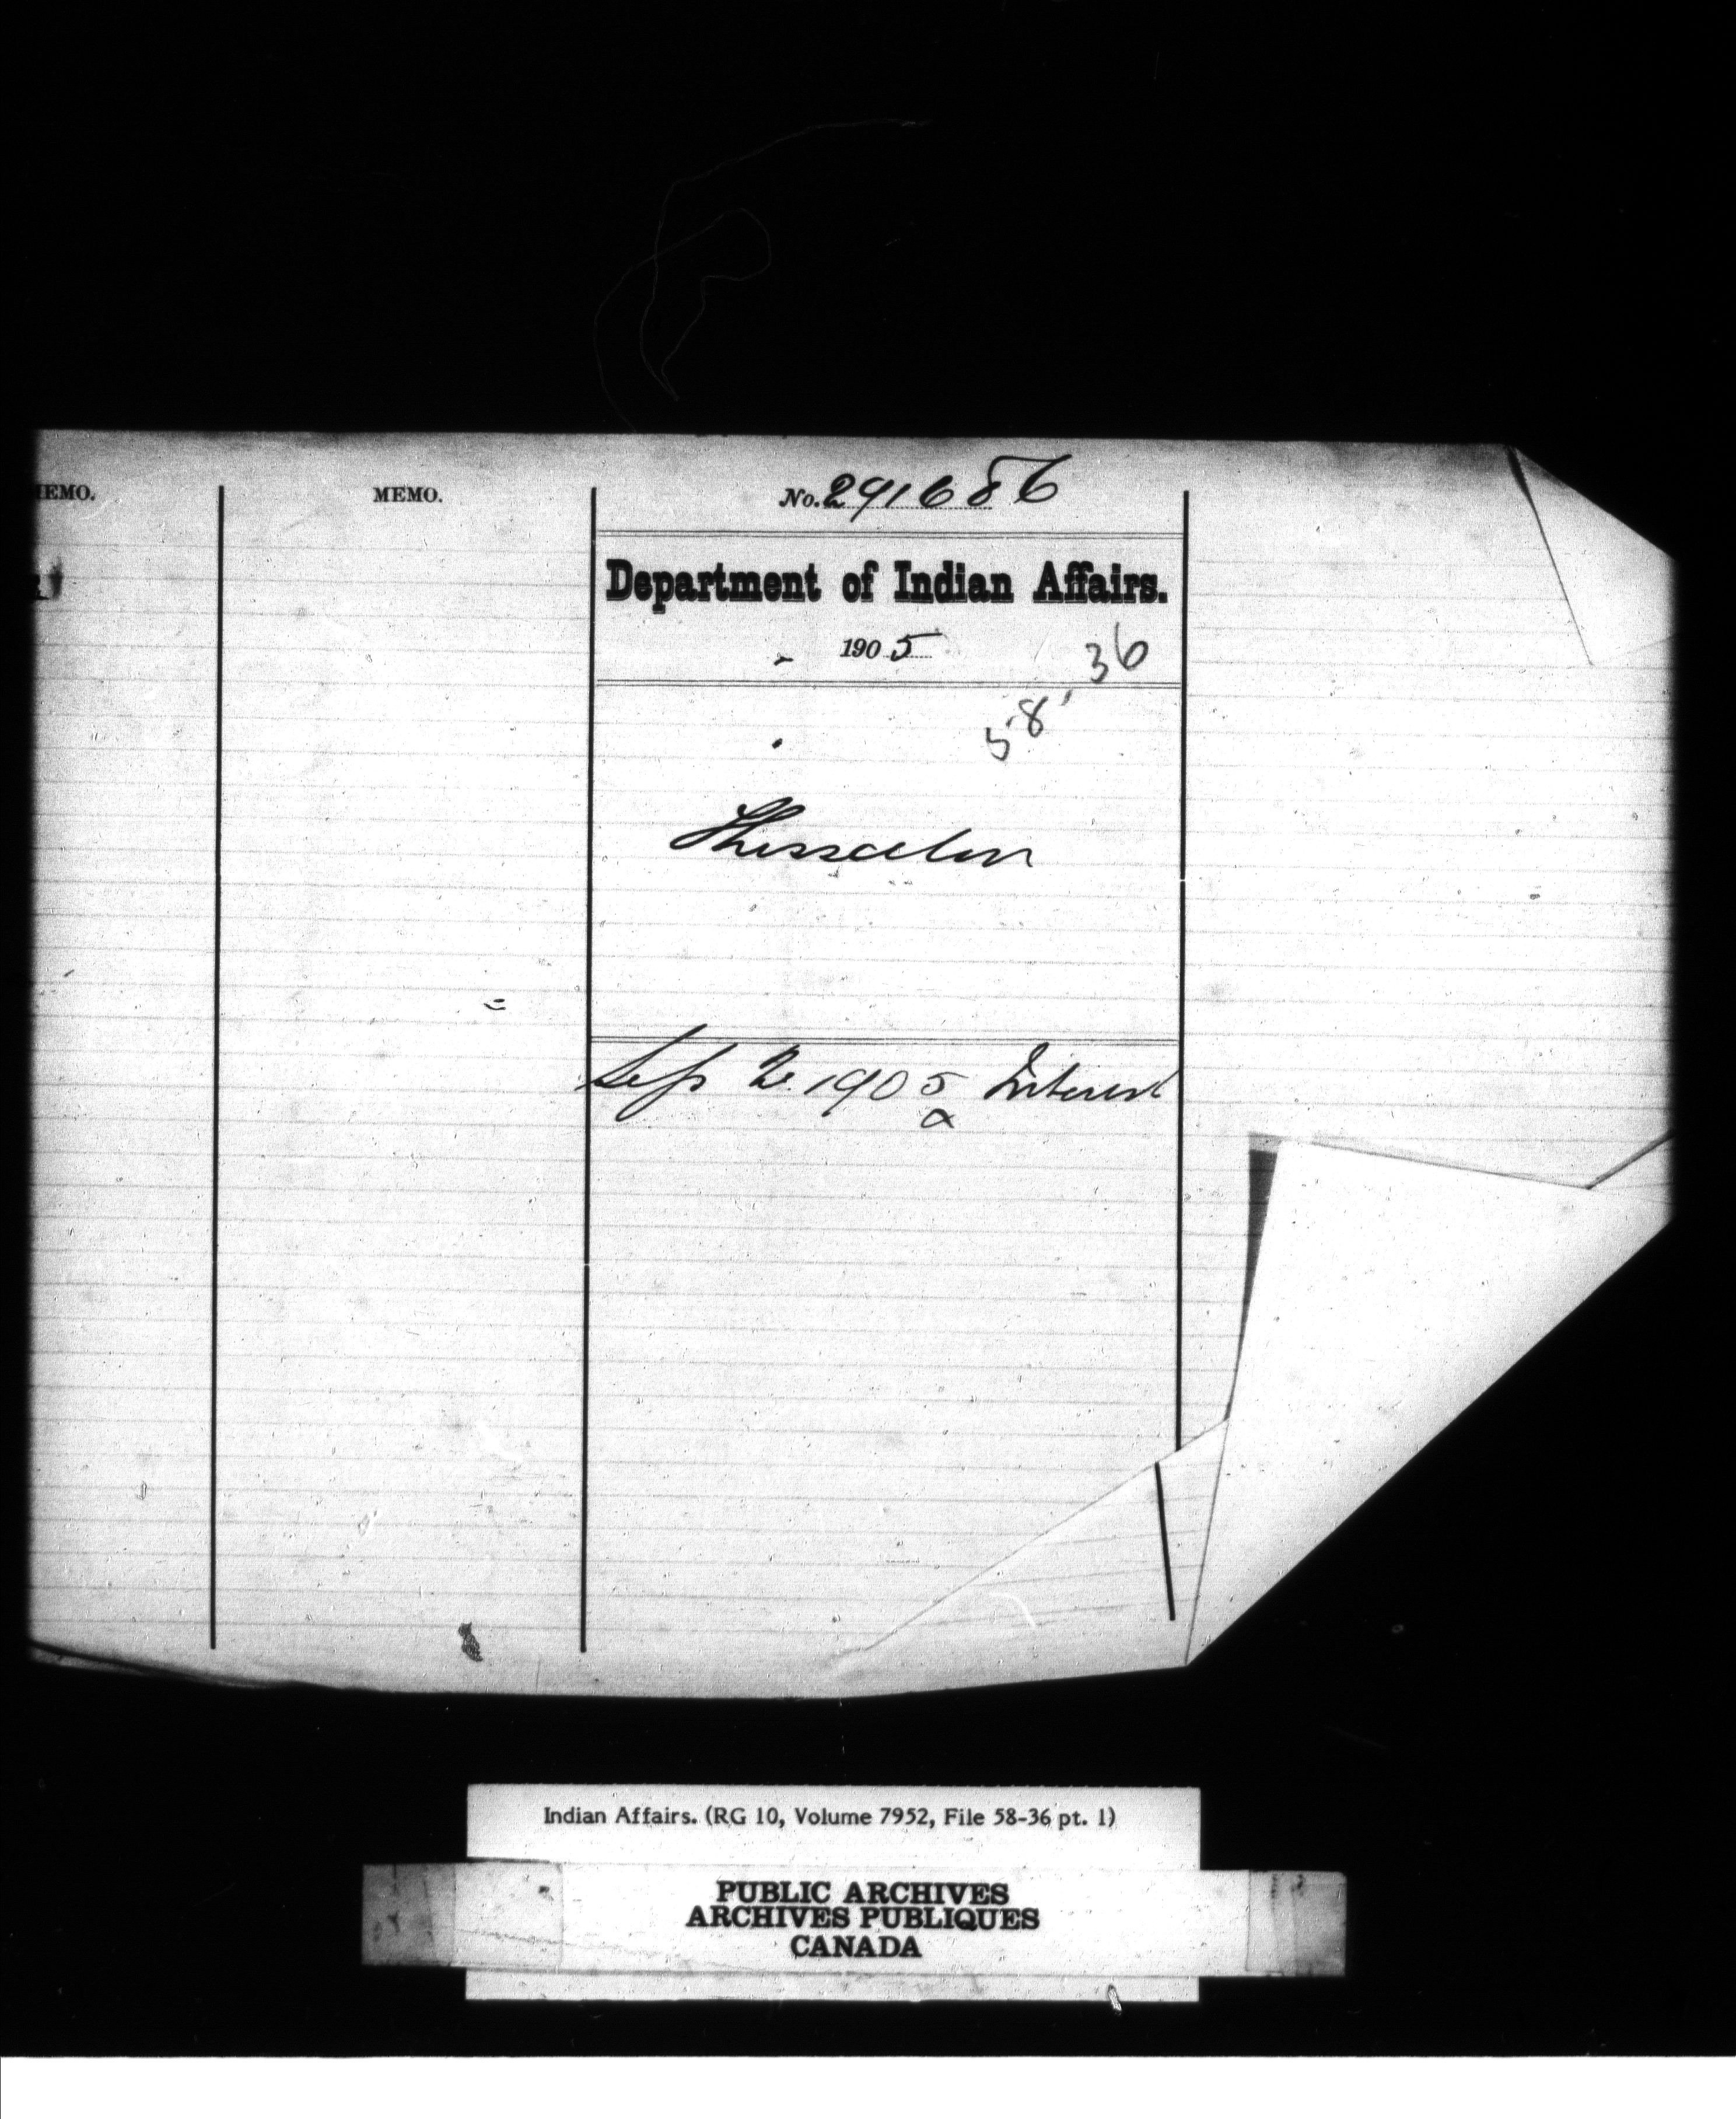 MEMO.
MEMO.
No. 291686
Department of Indian Affairs.
1905
36
58
Thessalon
Sep 2. 1905 Interest
a
Indian Affairs. (RG 10, Volume 7952, File 58-36 pt. 1)
PUBLIC ARCHIVES
ARCHIVES PUBLIQUES
CANADA